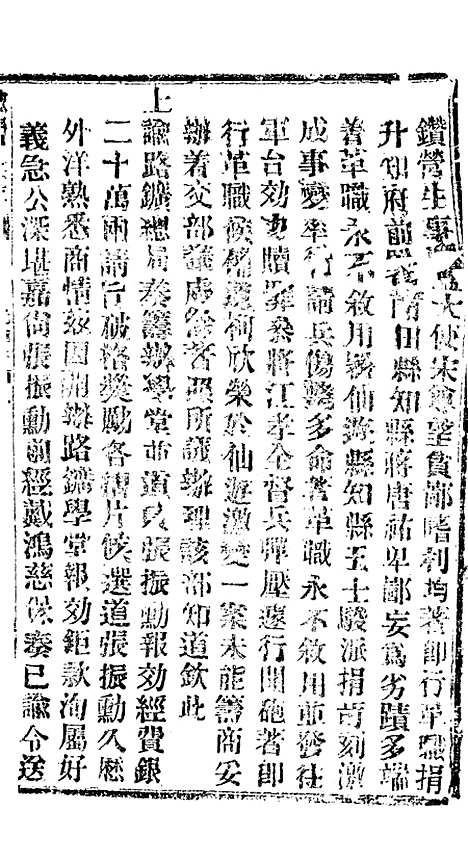 鑽營生事大使宋尊望貪鄙嗜利均著即行革職捐
升知府前莆田縣知縣蔣唐祐卑鄙妄為劣蹟多端
着革職永不敘用縣知縣王士駿派捐苛刻激
成事變率行請兵傷斃多命著革職永不敘用並發往
軍台効力贖罪參將江孝全督兵彈壓遽行開砲著即
行革職候補道柯欣榮於仙遊激變一案未能籌商妥
辦着交部議處餘著照所議辦理該部知道欽此
上
諭路鑛總局奏籌辦學堂並道員張振勳報効經費銀
二十萬兩請行破格獎勵各摺片候選道張振勳久歷
外洋熟悉商情茲因開辦路鑛學堂報効鉅款洵屬好
義急公深堪嘉尚張振勳前經戴鴻慈保奏已諭令送